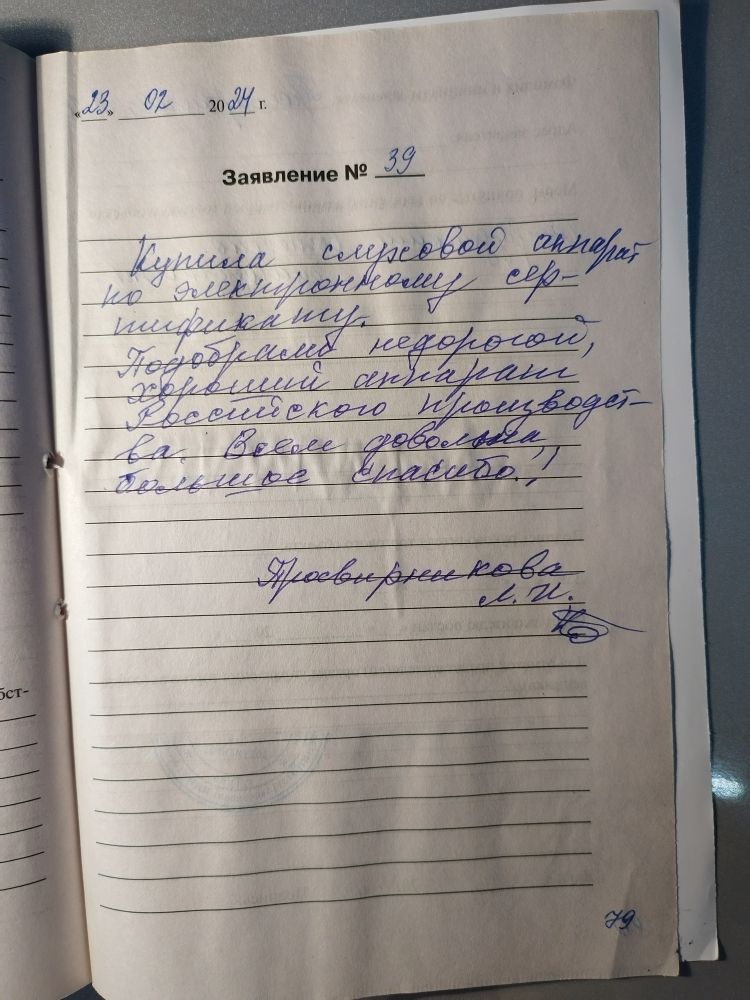 «23» 02 2024 г.
Заявление № 39
Купила слуховой аппарат
по электронному сер-
тификату.
Подобрали недорогой,
хороший аппарат
Российского производст-
ва. Всем довольна,
большое спасибо!!
Просвирникова
Л. И.
бст-
79